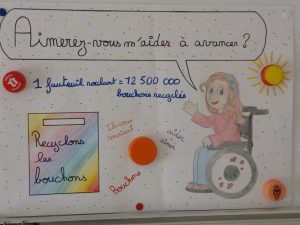 Aimerez-vous m'aider à avancer ?
1 fauteuil roulant = 72 500 000
bouchons recyclés
Recyclons
les
bouchons
Ils vous
sourient
aider
aimer
Bouchons